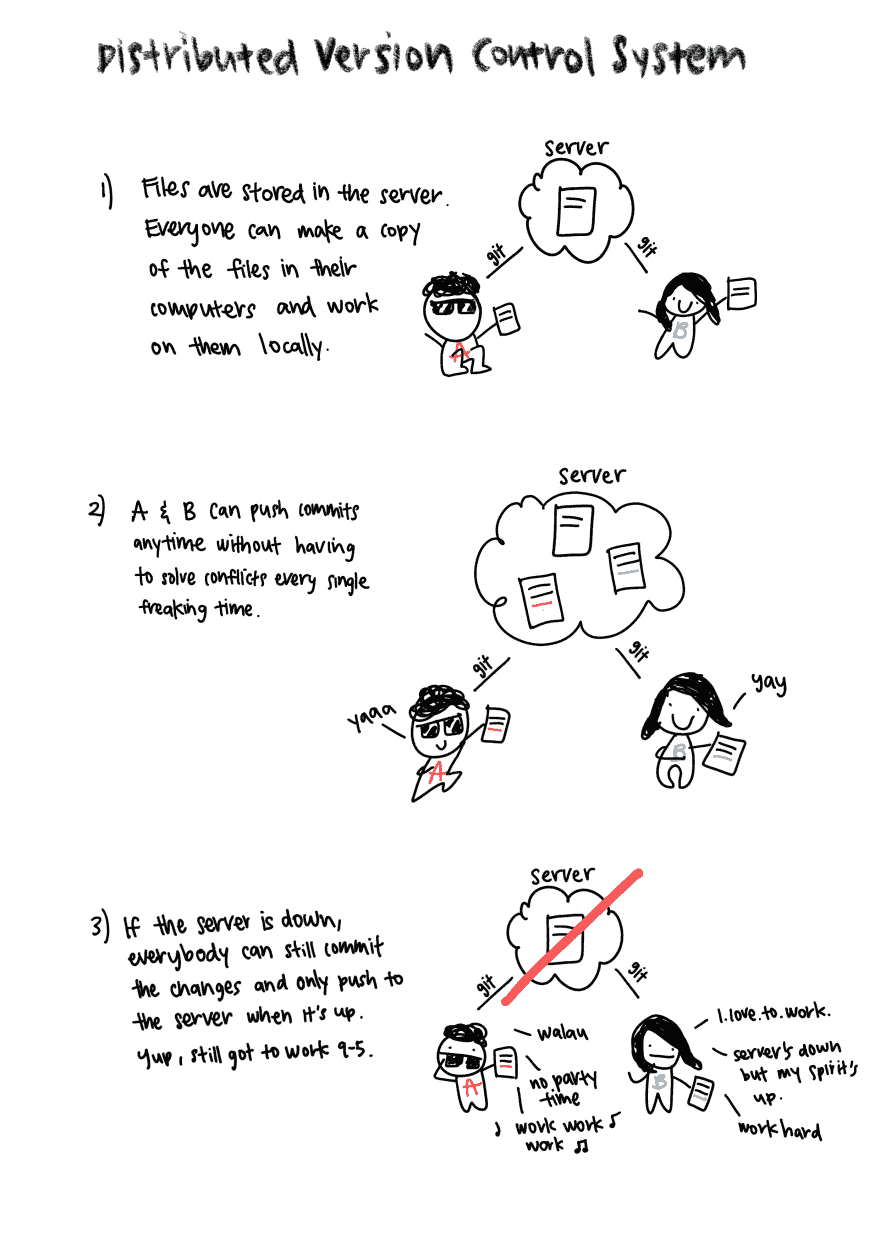 Distributed Version Control System
server
1) Files are stored in the server.
Everyone can make a copy
of the files in their
computers and work
on them locally.
git
git
A
B
server
2) A & B can push commits
anytime without having
to solve conflicts every single
freaking time.
git
git
yaaa
yay
A
B
server
3) If the server is down,
everybody can still commit
the changes and only push to
the server when it's up.
Yup, still got to work 9-5.
git
git
A
B
walau
no party
time
♪ work work ♫
work ♫
I.love.to.work.
server's down
but my spirit's
up.
work hard